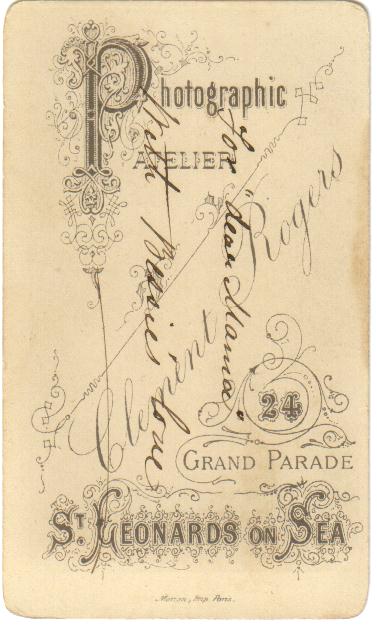 Photographic
ATELIER
Clement Rogers
24
GRAND PARADE
ST. LEONARDS ON SEA
For "dear Mama"
With Bessie's love
Marion, Imp. Paris.